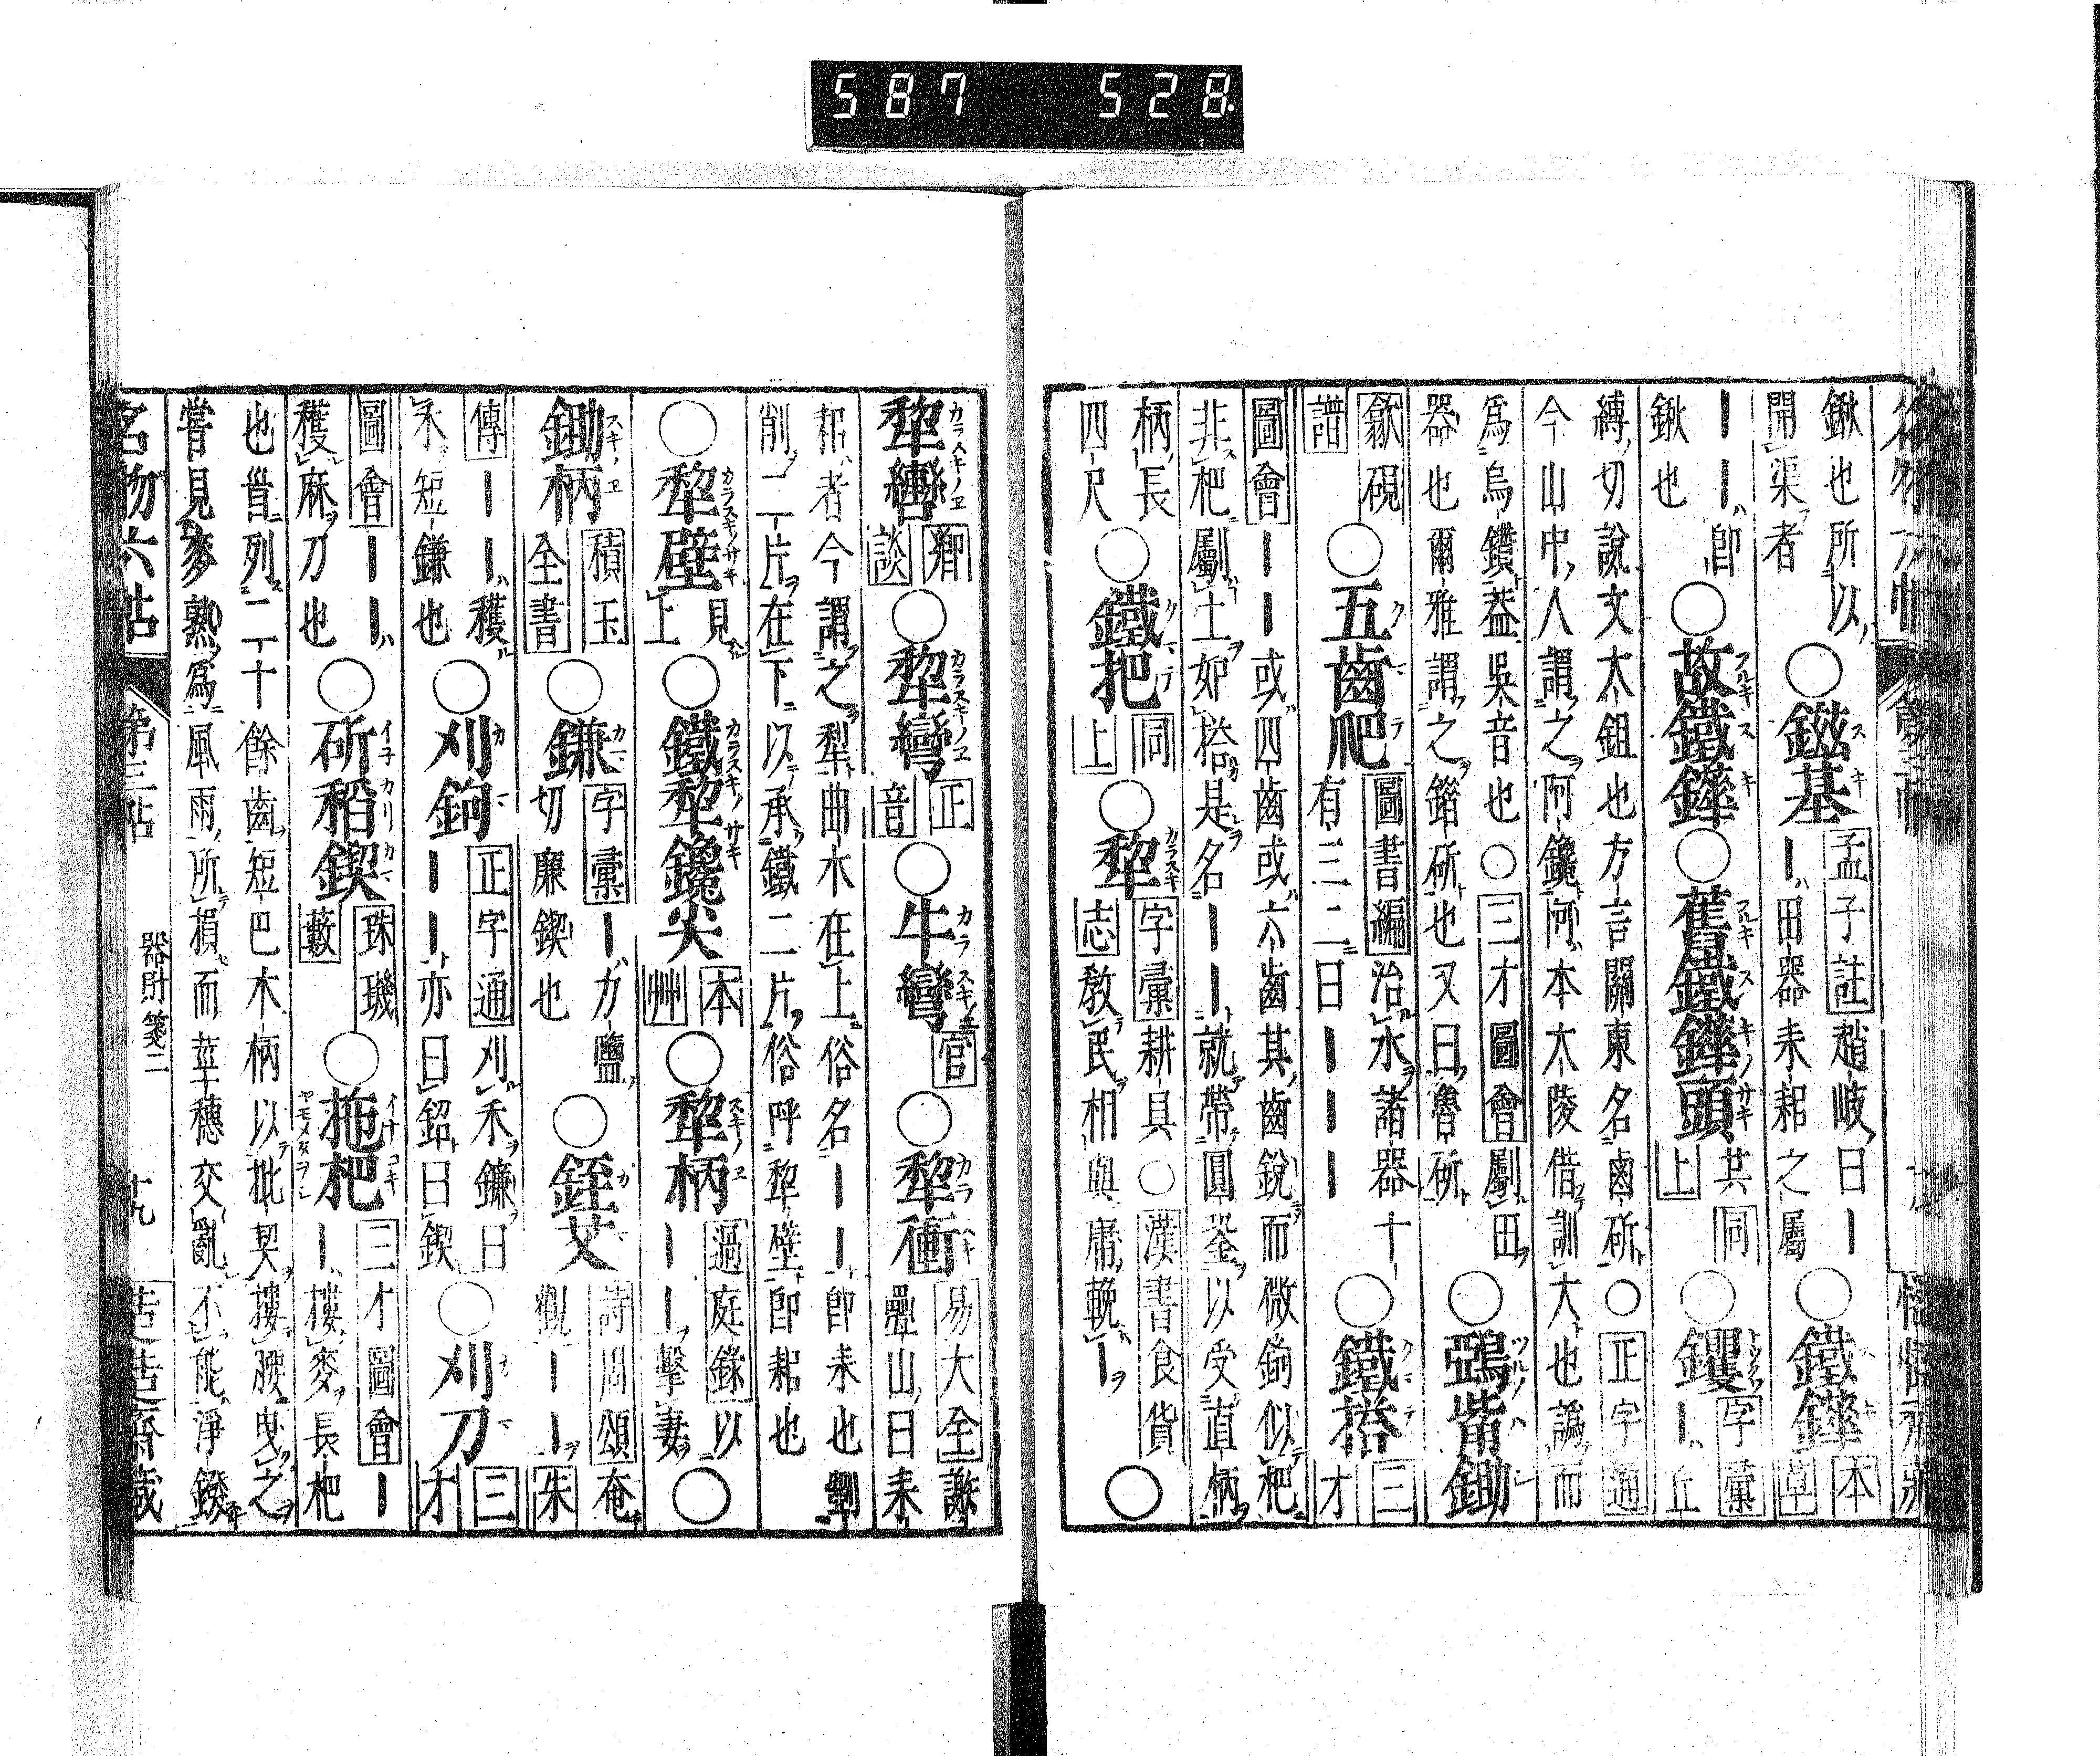 587 528
鍬也所以
開渠者
○鎡基
孟子註趙岐曰丨
丨田器耒耜之屬
○鐵鏵
本
草
丨丨卽
鍬也
○故鐵鏵
○舊鐵鏵頭
共同
上
○钁
字彙
丨丘
縛切說文太鉏也方言關東名鹵斫○正字通
今山中人謂之阿鑱阿本太陵借訓大也譌而
爲烏鑽蓋吳音也○三才圖會劚田
器也爾雅謂之鍿斫也又曰魯斫
○鵶觜鋤
歙硯
譜
○五齒爬
圖書編治水諸器十
有三二曰丨丨丨
○鐵搭
三
才
圖會丨丨或四齒或六齒其齒銳而微鉤似杷
非杷劚土如搭是名丨丨就帶圓銎以受直柄
柄長
四尺
○鐵把
同
上
○犂
字彙耕具○漢書食貨
志敎民相與庸輓丨
○
犂轡
卿
談
○犂彎
正
音
○牛彎
官
○犂衝
易大全謝
疊山曰耒
耜者今謂之犁曲木在上俗名丨丨卽耒也劉
削二片在下以承鐵二片俗呼犂壁卽耜也
○犂壁
見
上
○鐵犂鑱尖
本
艸
○犂柄
過庭錄以
丨丨擊妻
○
鋤柄
積玉
全書
○鎌
字彙丨力鹽
切廉鍥也
○銍艾
詩周頌奄
觀丨丨朱
傳丨丨穫
禾短鎌也
○刈鉤
正字通刈禾鎌曰
丨丨亦曰鉊曰鍥
○刈刀
三
才
圖會丨丨
穫麻刀也
○斫稻鍥
珠璣
藪
○拖杷
三才圖會丨
丨摟麥長杷
也首列二十餘齒短巴木柄以批契摟腰曳之
嘗見麥熟爲風雨所損而莖穗交亂不能淨鏺
名物六帖 第三帖 器財箋二 十九